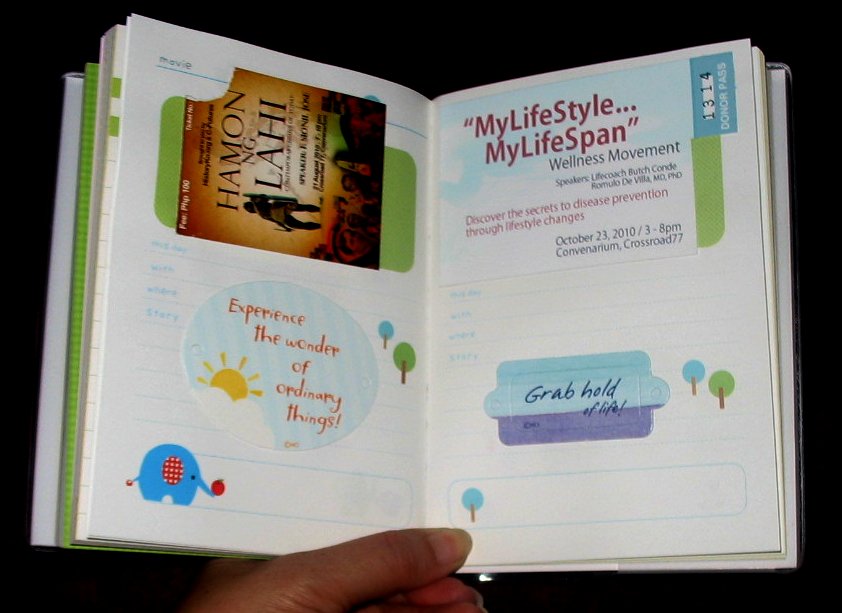 movie
Ticket No.
Fee: Php 100
HAMON
NG
LAHI
SPEAKER: F. MONIL JOSE
21 August 2010
Convenarium
this day
with
where
Story
Experience
the wonder
of
ordinary
things!
1314
DONOR PASS
“MyLifeStyle...
MyLifeSpan”
Wellness Movement
Speakers: Lifecoach Butch Conde
Romulo De Villa, MD, PhD
Discover the secrets to disease prevention
through lifestyle changes
October 23, 2010 / 3 - 8pm
Convenarium, Crossroad77
this day
with
where
Story
Grab hold
of life!